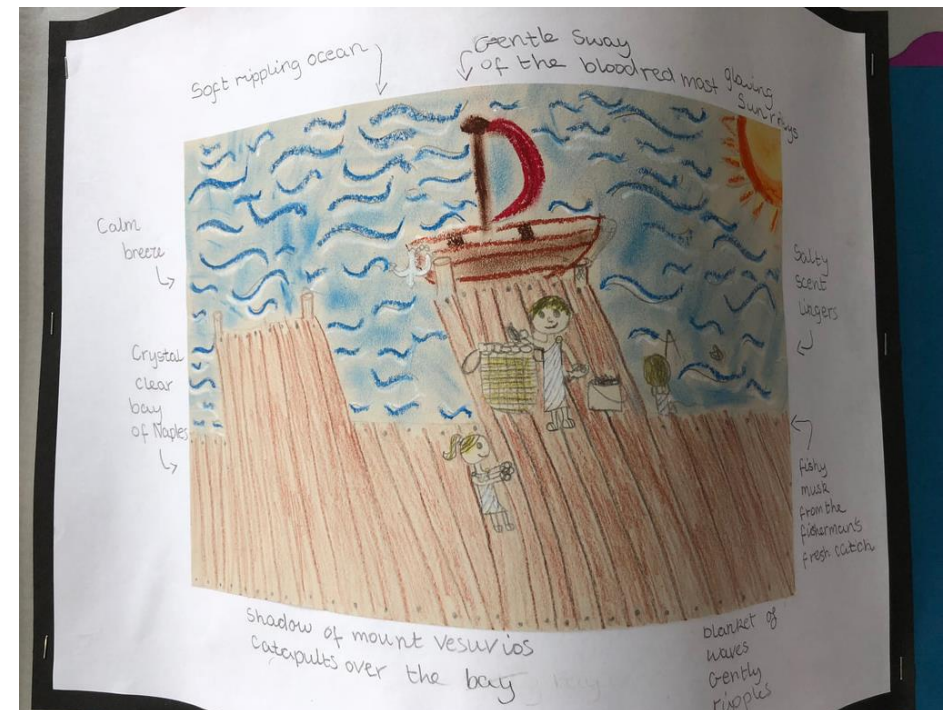 Soft rippling ocean
Gentle Sway
of the bloodred mast
glowing
Sunrays
Calm
breeze
Salty
scent
lingers
Crystal
clear
bay
of Naples
fishy
musk
from the
fisherman's
fresh catch
Shadow of mount vesuvios
Catapults over the bay
blanket of
waves
Gently
ripples